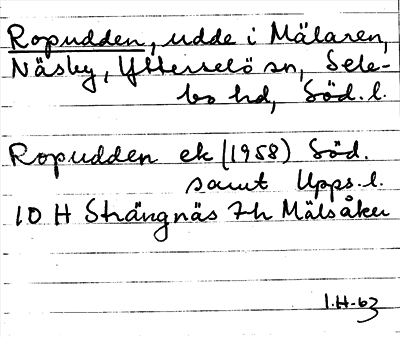 Ropudden, udde i Mälaren,
Näsby, Ytterselö sn, Sele-
bo hd, Söd. l.
Ropudden ek (1958) Söd.
samt Upps. l.
10 H Strängnäs 7h Mälsåker
1.H-63